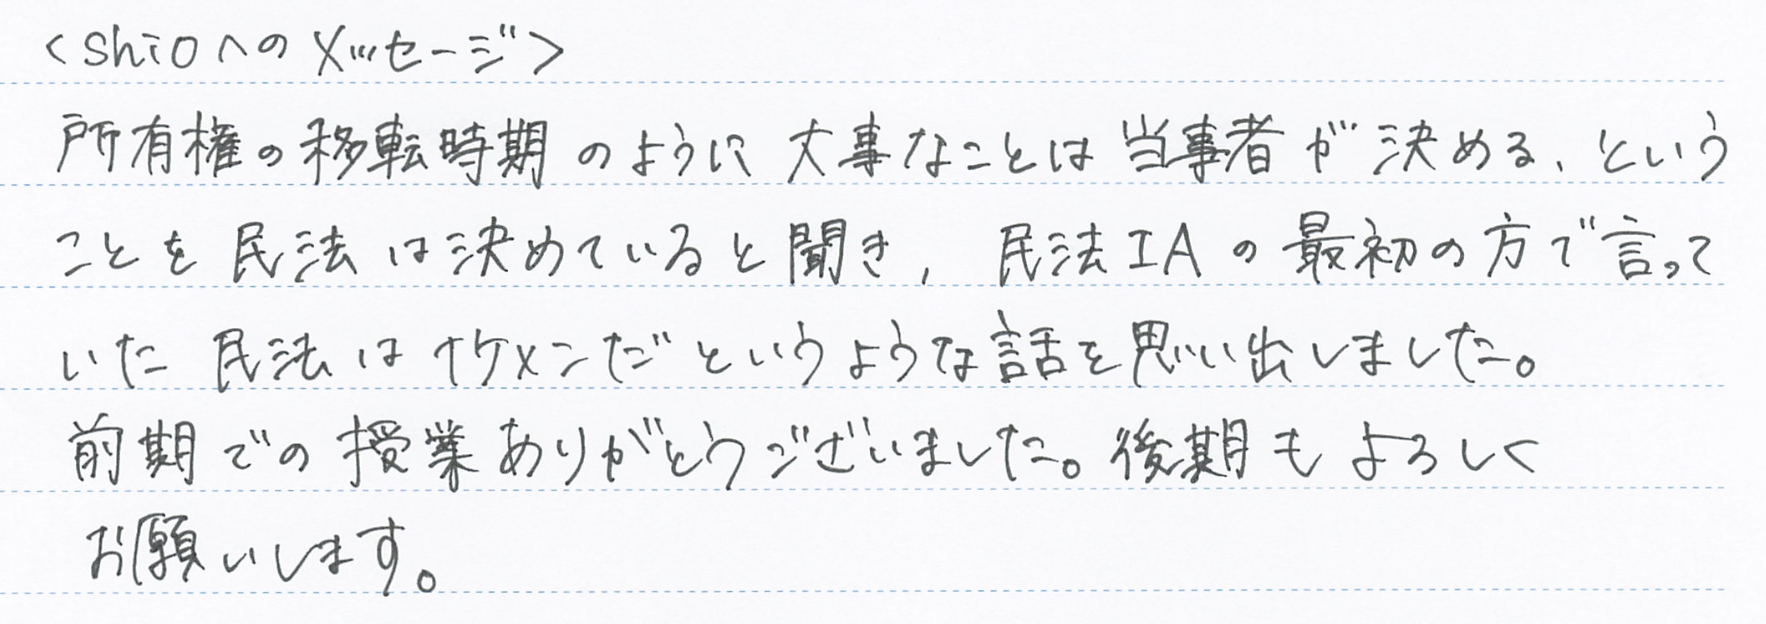 <shioへのメッセージ>
所有権の移転時期のように大事なことは当事者が決める、という
ことを民法は決めていると聞き, 民法IAの最初の方で言って
いた民法はイケメンだというような話を思い出しました。
前期での授業ありがとうございました。後期もよろしく
お願いします。